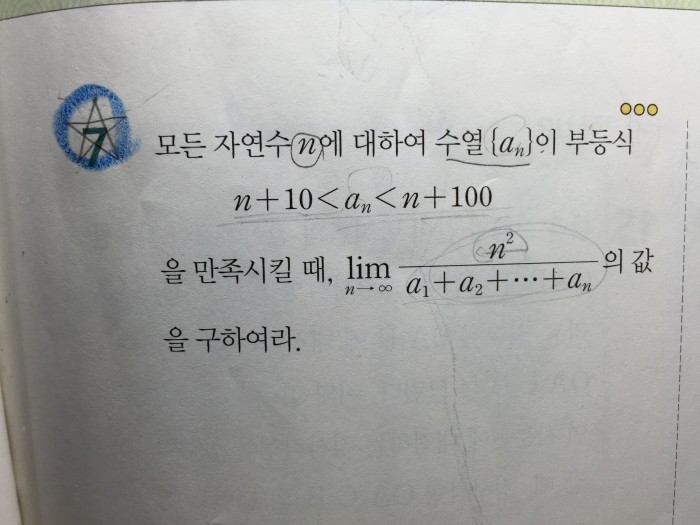 7
모든 자연수 n에 대하여 수열 {aₙ}이 부등식
n+10<aₙ<n+100
을 만족시킬 때, lim_{n→∞} n²/(a₁+a₂+⋯+aₙ)의 값
을 구하여라.